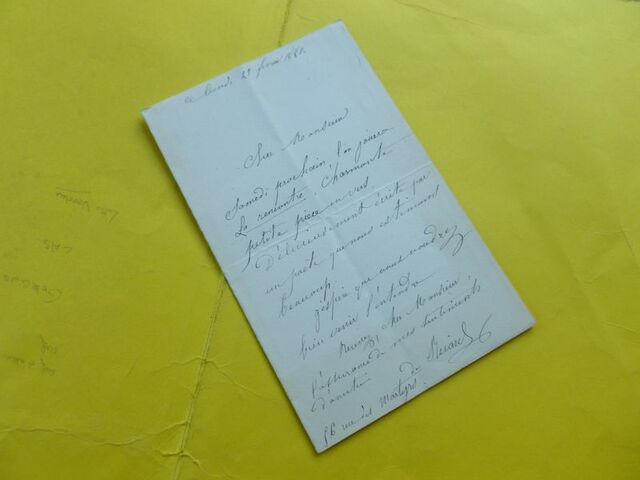 ce lundi 21 février 1881.
Cher Monsieur
Samedi prochain, l'on jouera
La rencontre Charmante
petite pièce en vers,
Délicieusement écrite par
un poète que nous estimons
beaucoup.
J'espère que vous voudrez
bien venir l'entendre
Recevez, cher Monsieur
l'assurance de mes sentiments
d'amitié.
rue des Martyrs.